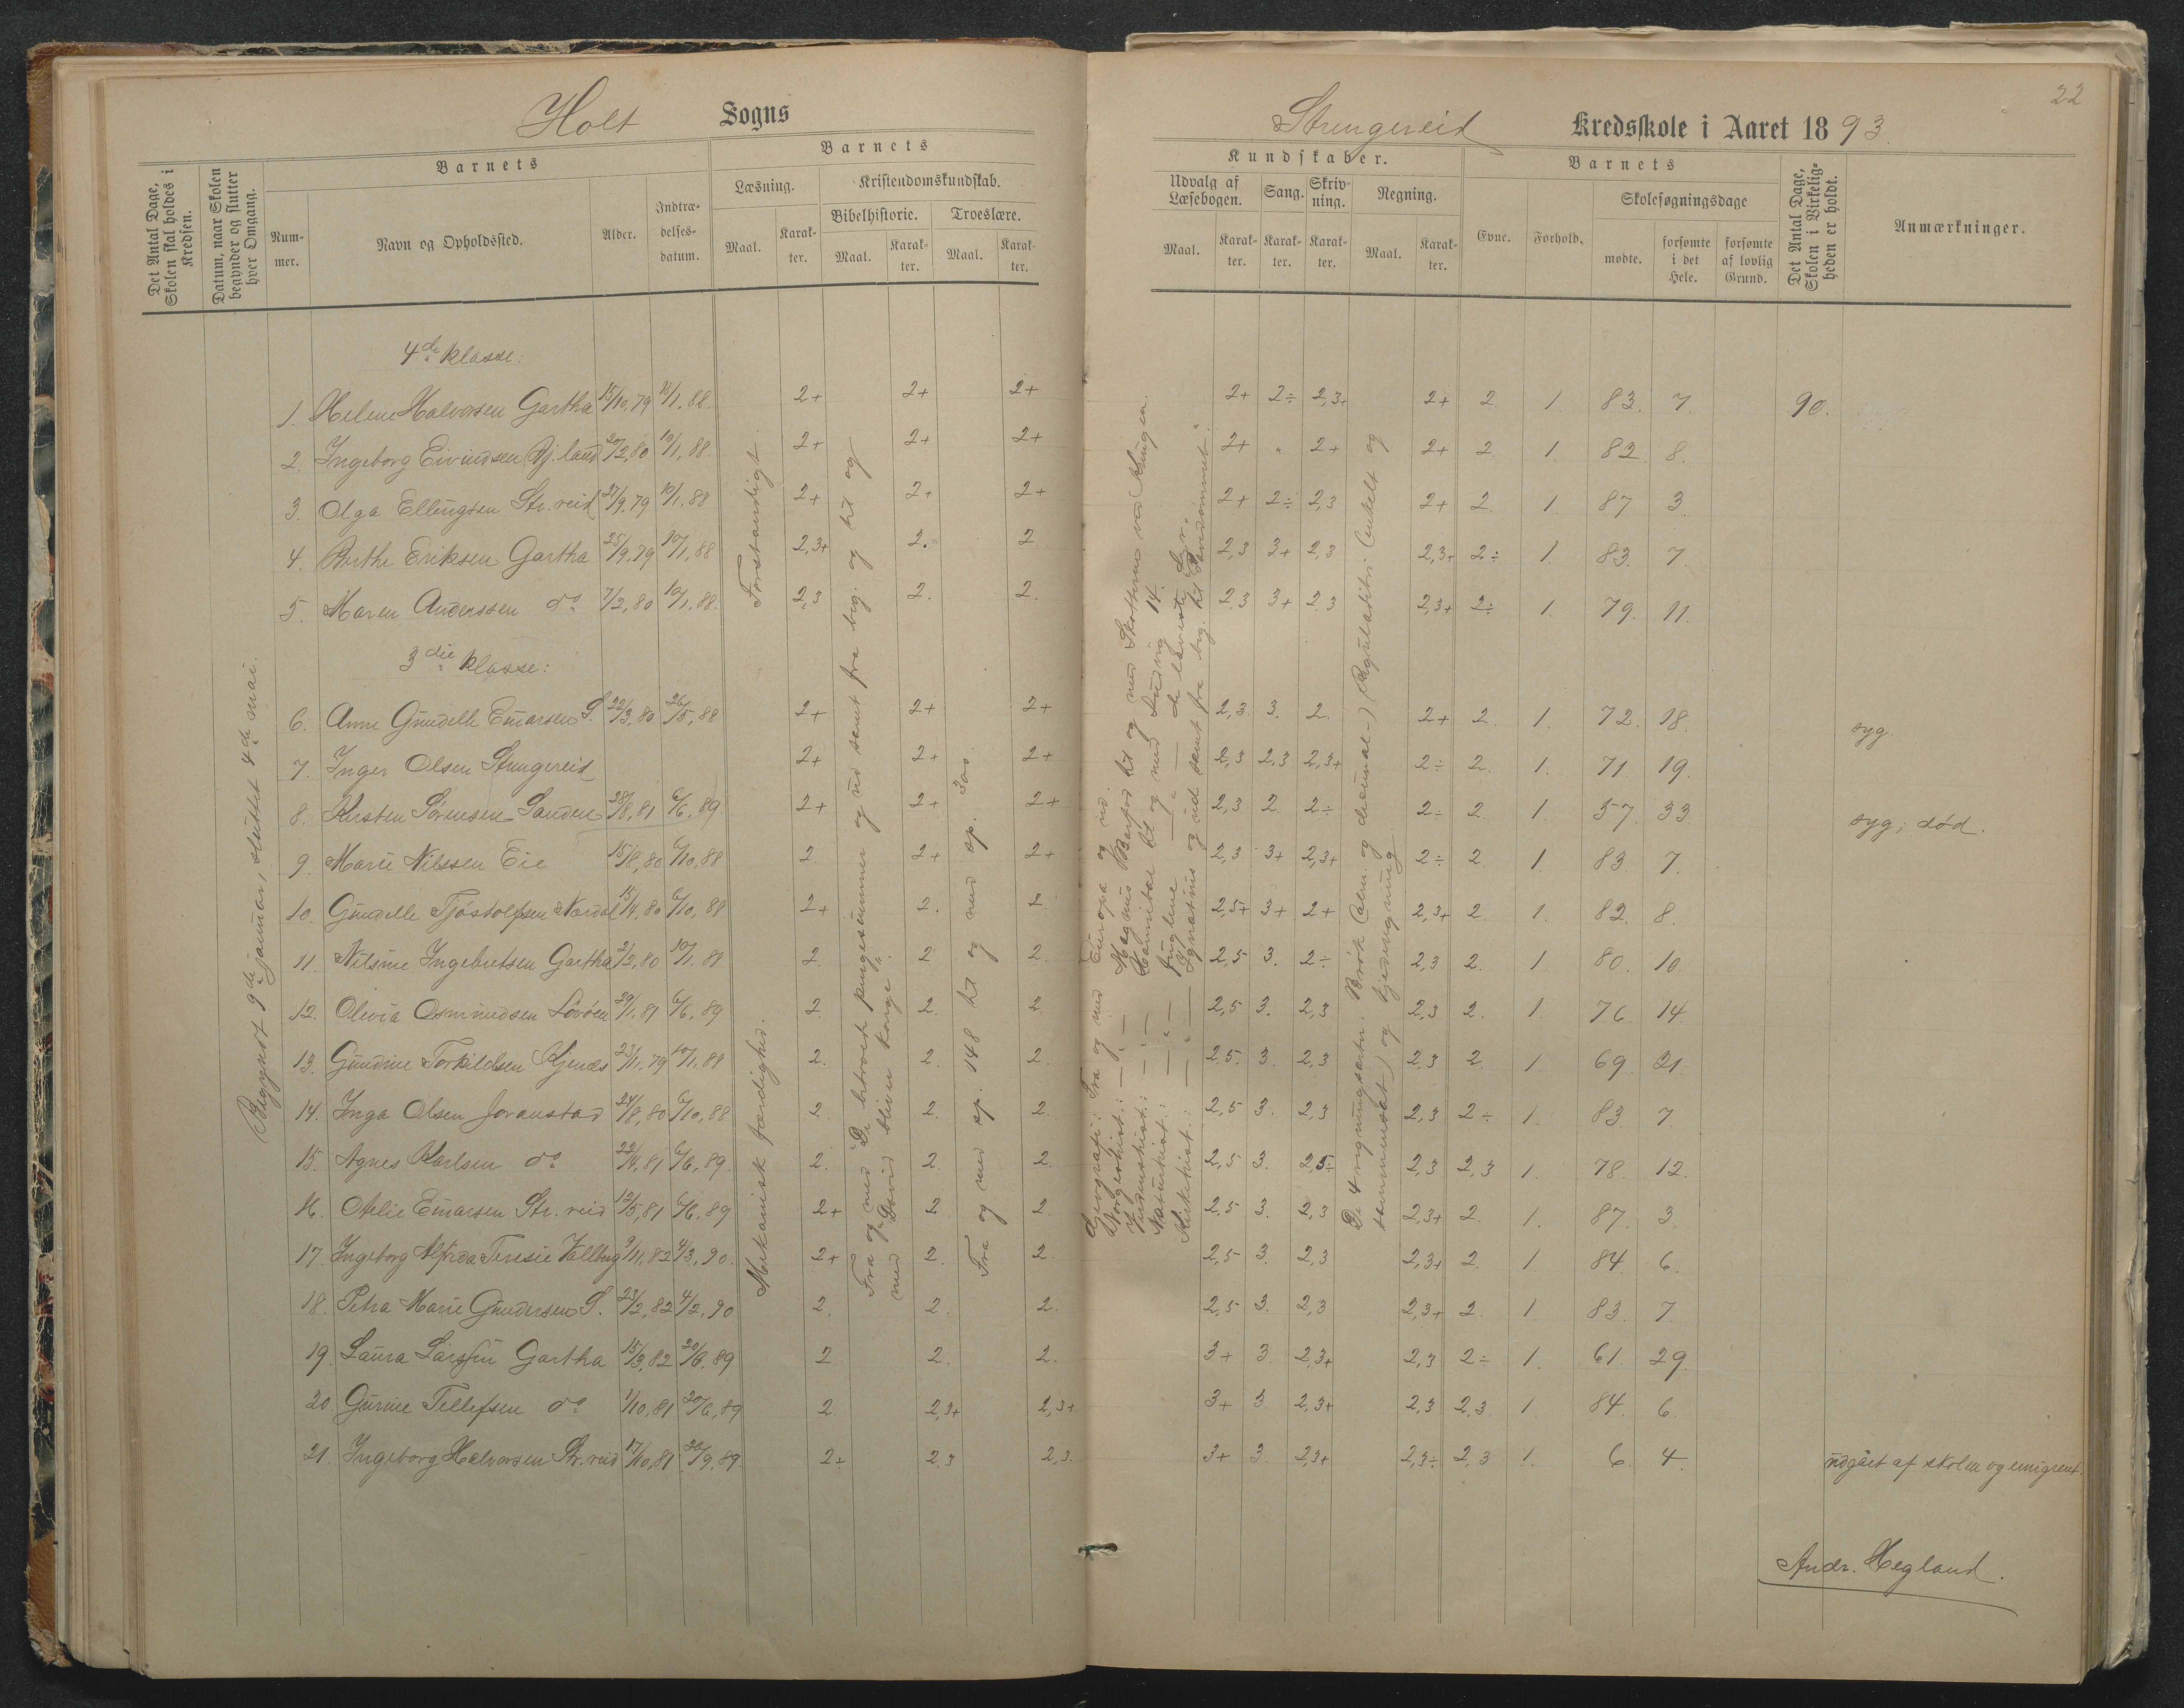 Holt Sogns
Strengereid Kredsskole i Aaret 1893.
22
Det Antal Dage, Skolen skal holdes i Kredsen.
Datum, naar Skolen begynder og slutter hver Omgang.
Barnets
Nummer.
Navn og Opholdssted.
Alder.
Indtrædelsesdatum.
Barnets
Læsning.
Maal.
Karakter.
Kristendomskundskab.
Bibelhistorie.
Maal.
Karakter.
Troeslære.
Maal.
Karakter.
Kundskaber.
Udvalg af Læsebogen.
Maal.
Karakter.
Sang.
Karakter.
Skrivning.
Karakter.
Regning.
Maal.
Karakter.
Barnets
Evne.
Forhold.
Skolesøgningsdage
mødte.
forsømte i det Hele.
forsømte af lovlig Grund.
Det Antal Dage, Skolen i Virkeligheden er holdt.
Anmærkninger.
Begyndt 9de januar, sluttet 4de mai.
Mekanisk færdighed. Forstandigt.
Fra og med "De betroede pengesummer" og ud samt fra beg. og til og
med "David bliver konge".
Fra og med sp. 148 til og med sp. 300.
Geografi: Fra og med Europa og ud.
Norgeshist.: — „ — Magnus Barfod til og med Skotterne ved Kringen.
Verdenshist.: — „ — Hannibal til og med Ludvig 14.
Naturhist.: — „ — fuglene — „ — de laveste dyr.
Kirkehist.: — „ — Ignatius og ud samt fra beg. til
De 4 regningsarter i Brøk (alm. og decimal-) Reguladetri (enkelt og
sammensat) og kjederegning.
4de klasse:
1. Helene Halvorsen Gartha 15/10,79 10/1,88. 2+ 2+ 2+ 2+ 2÷ 2,3+ 2+ 2 1. 83. 7. 90.
2. Ingeborg Eivindsen Bj.land 20/2,80 10/1,88. 2+ 2+ 2+ 2+ „ 2+ 2+ 2 1. 82. 8.
3. Olga Ellingsen Str.reid 27/9,79 10/1,88 2+ 2+ 2+ 2+ 2÷ 2,3 2+ 2. 1. 87 3.
4. Berthe Eriksen Gartha 25/9,79 10/1,88 2,3+ 2. 2 2,3 3+ 2,3 2,3+ 2÷ 1. 83. 7.
5. Maren Anderssen do 7/2,80 10/1,88. 2,3 2. 2. 2,3 3+ 2,3 2,3+ 2÷ 1. 79. 11.
3die klasse:
6. Anne Gundelle Einarsen S. 22/3,80 26/5,88 2+ 2+ 2+ 2,3. 3. 2. 2+ 2. 1. 72. 18. syg.
7. Inger Olsen Strengereid 2+ 2+ 2+ 2,3 2,3 2,3+ 2÷ 2. 1. 71. 19.
8. Kirsten Sørensen Sanden 28/8,81 6/6,89. 2+ 2+ 2+ 2,3 2. 2÷ 2÷ 2. 1. 57. 33. syg; død.
9. Marie Nilssen Eie 15/8,80 6/10,88 2. 2+ 2+ 2,3 3+ 2,3+ 2÷ 2 1. 83 7.
10. Gundelle Tjøstolfsen Nærdal 15/4,80 6/10,88 2+ 2. 2. 2,5+ 3+ 2+ 2,3+ 2. 1. 82. 8.
11. Nilsine Ingebretsen Gartha 2/2,80 10/1,88 2. 2. 2. 2,5 3. 2÷ 2,3 2. 1. 80. 10.
12. Olevia Osmundsen 29/1,81 6/6,89 2. 2. 2. 2,5 3. 2,3 2,3 2. 1. 76. 14.
13. Gundine Torkildsen Kjenes 23/11,79 10/1,88 2. 2. 2. 2,5. 3. 2,3 2,3 2. 1. 69. 21.
14. Inga Olsen Goranstad 24/8,80 6/10,88 2. 2. 2 2,5 3. 2,3 2,3 2÷ 1. 83. 7.
15. Agnes Karlsen do 22/4,81 6/6,89. 2. 2. 2. 2,5 3. 2,3÷ 2,3 2,3 1. 78. 12.
16. Otelie Einarsen Str.reid 12/5,81 6/6,89 2+ 2 2. 2,5 3. 2,3 2,3+ 2. 1. 87. 3.
17. Ingeborg Alfrida Teresie Vallberg 9/11,82 4/3,90. 2+ 2. 2 2,5 3. 2,3 2,3+ 2. 1. 84. 6.
18. Petra Marie Gundersen S. 23/2,82 4/2,90 2. 2. 2. 2,5 3. 2,3 2,3+ 2. 1 83. 7.
19. Laura Larssen Gartha 15/3,82 20/6,89 2. 2. 2. 3+ 3. 2,3+ 2,3 2÷ 1. 61. 29.
20. Gurine Tellefsen do 1/10,81 20/6,89 2. 2,3+ 2,3+ 3+ 3. 2,3+ 2,3 2,3 1. 84. 6.
21. Ingeborg Halvorsen Str.reid 17/10,81 20/9,89. 2÷ 2,3 2,3. 3+ 3. 2,3+ 2,3÷ 2,3 1. 6. 4. udgået af skolen og emigrert.
Andr. Hegland.